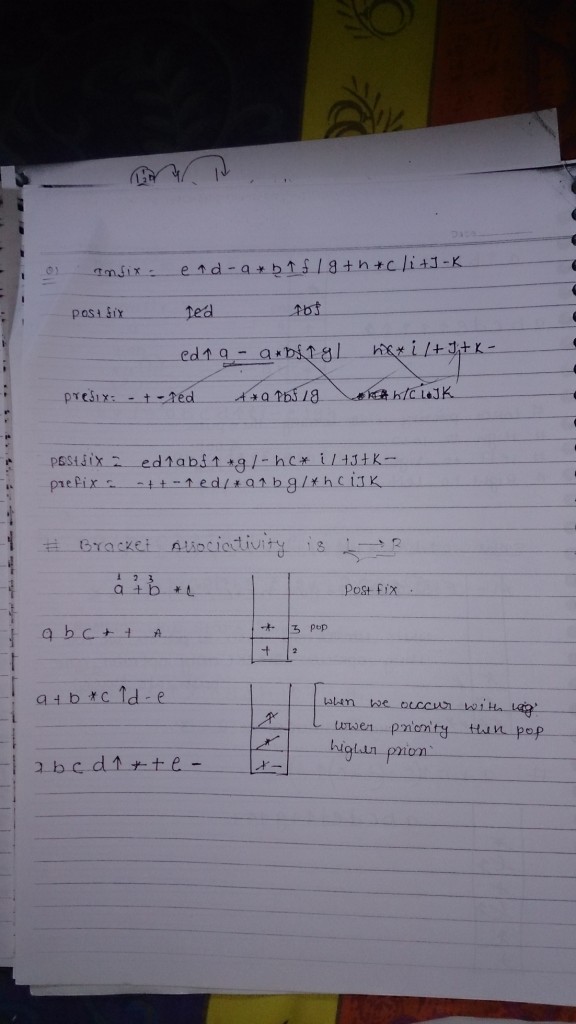 Infix = e↑d-a*b↑f/g+h*c/i+J-K
postfix ↑ed ↑bf
ed↑a - a*bf↑g/ hc*i/+J+K-
prefix: -+-↑ed +*a↑bf/g h/ciJK
postfix = ed↑abf↑*g/-hc*i/+J+K-
prefix = -++-↑ed/*a↑bg/*hciJK
# Bracket Associativity is L→R
1 2 3
a+b*c postfix.
abc*+ * 3 pop
+ 2
a+b*c↑d-e [when we occur with
↑ lower priority then pop
* higher prion
abcd↑*+e-